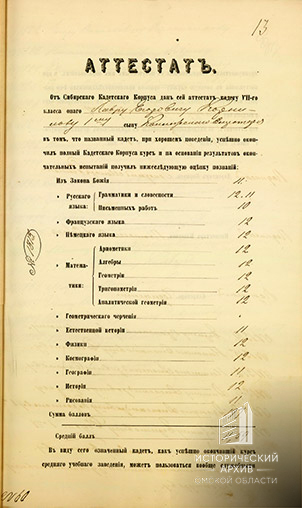 13
АТТЕСТАТЪ.
Отъ Сибирскаго Кадетскаго Корпуса данъ сей аттестатъ кадету VII-го
класса онаго Лавру Егоровичу Корни-
лову 1му сыну
въ томъ, что названный кадетъ, при хорошемъ поведеніи, успѣшно окон-
чилъ полный Кадетскаго Корпуса курсъ и на основаніи результатовъ окон-
чательныхъ испытаній получилъ нижеслѣдующую оцѣнку познаній:
Изъ Закона Божія 11
» Русскаго языка: Грамматики и словесности 12.11
Письменныхъ работъ 10
» Французскаго языка 12
» Нѣмецкаго языка 12
» Матема-тики: Ариѳметики 12
Алгебры 12
Геометріи 12
Тригонометріи 12
Аналитической геометріи 12
» Геометрическаго черченія
» Естественной исторіи 11
» Физики 12
» Космографіи 12
» Географіи 11
» Исторіи 12
» Рисованія 11
Сумма балловъ
Средній баллъ
Въ виду сего означенный кадетъ, какъ успѣшно окончившій курсъ
средняго учебнаго заведенія, можетъ пользоваться вообще
ИСТОРИЧЕСКИЙ
АРХИВ
ОМСКОЙ ОБЛАСТИ